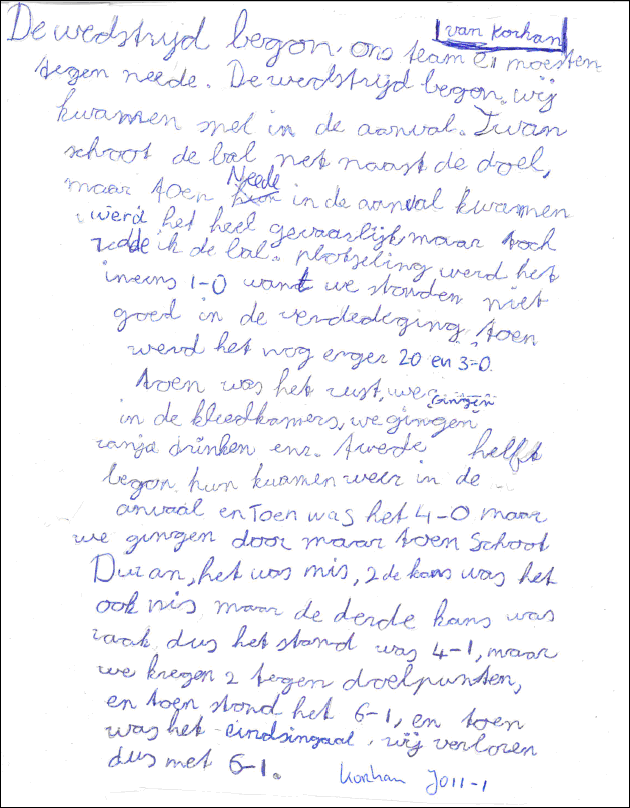 van Korhan
De wedstrijd begon. ons team en moesten
tegen neede. De wedstrijd begon. wij
kwamen snel in de aanval. Iwan
schoot de bal net naast de doel,
maar toen Neede in de aanval kwamen
werd het heel gevaarlijk maar toch
redde ik de bal. plotseling werd het
ineens 1-0 want we stonden niet
goed in de verdedeging. toen
werd het nog erger 20 en 3-0.
toen was het rust, we gingen
in de kleedkamers, we gingen
ranja drinken enz. twede helft
begon. hun kwamen weer in de
anvaal en Toen was het 4-0 maar
we gingen door maar toen schoot
Duran, het was mis, 2de kans was het
ook mis maar de derde kans was
raak dus het stand was 4-1, maar
we kregen 2 tegen doelpunten,
en toen stond het 6-1, en toen
was het eindsingaal. wij verloren
dus met 6-1. Korhan JO11-1